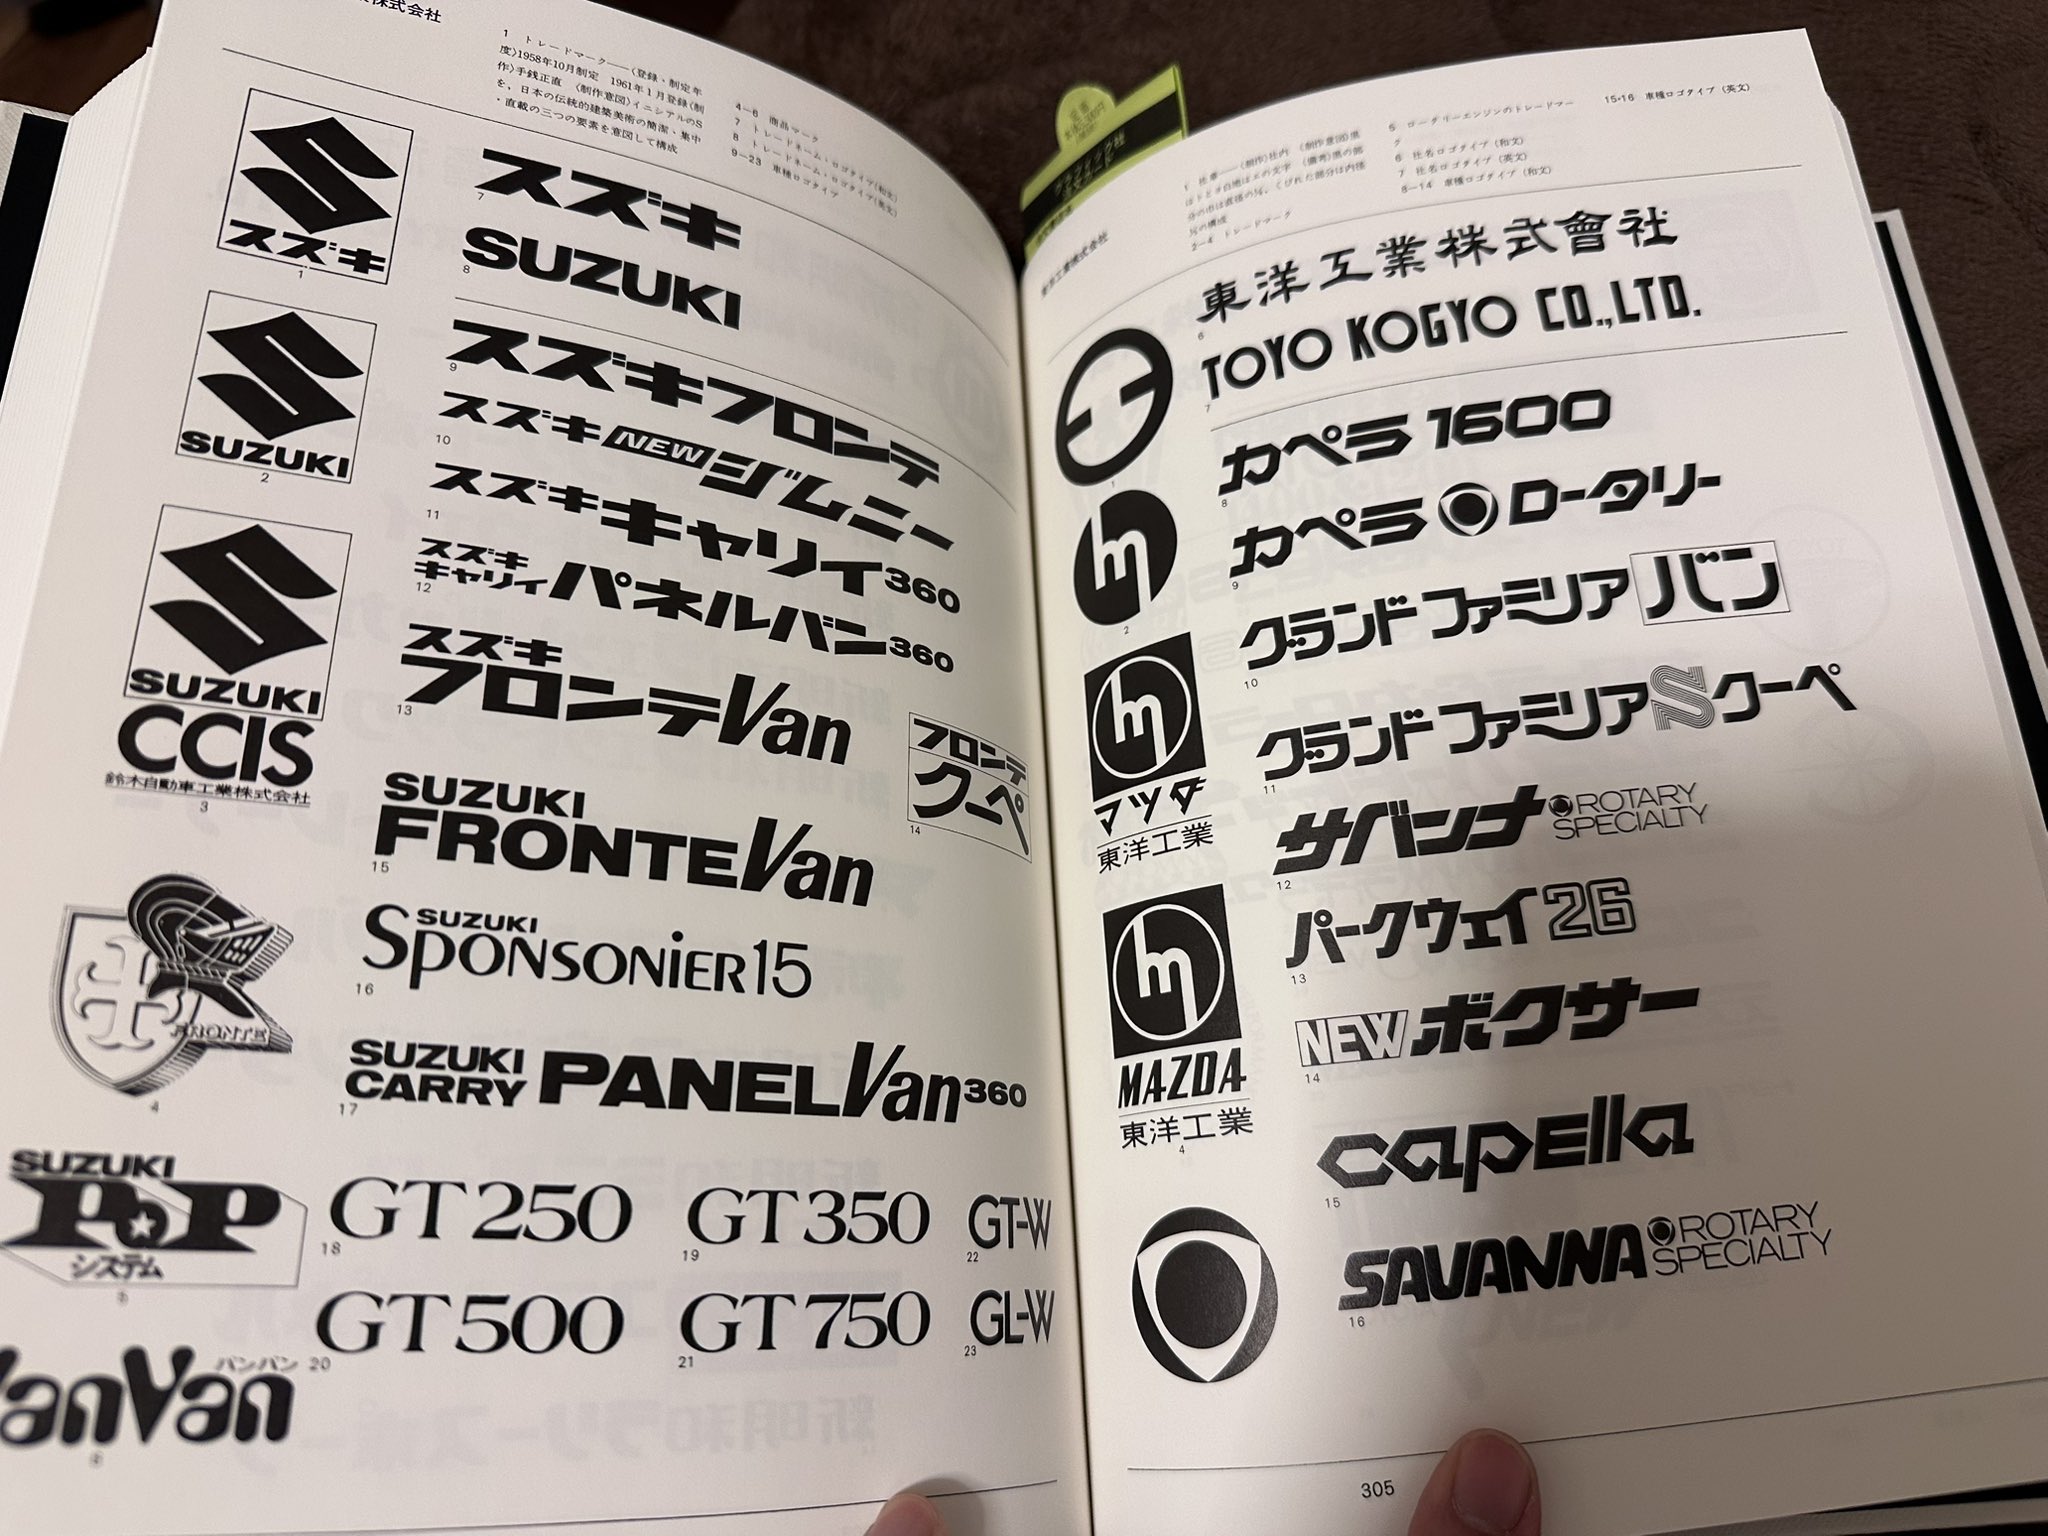 株式会社
1 トレードマーク——〈登録・制定年
度〉1958年10月制定 1961年1月登録〈制
作〉手銭正直 〈制作意図〉イニシアルのS
を、日本の伝統的建築美術の簡潔・集中
・直截の三つの要素を意図して構成
4—6 商品マーク
7 トレードネーム・ロゴタイプ(和文)
8 トレードネーム・ロゴタイプ(英文)
9—23 車種ロゴタイプ
スズキ
1
SUZUKI
2
SUZUKI
CCIS
鈴木自動車工業株式会社
3
FRONTE
4
SUZUKI
PoP
システム
5
VanVan
バンバン
6
スズキ
7
SUZUKI
8
スズキフロンテ
9
スズキNEWジムニー
10
スズキキャリイ360
11
スズキ
キャリイパネルバン360
12
スズキ
フロンテVan
13
フロンテ
クーペ
14
SUZUKI
FRONTEVan
15
SUZUKI
SPONSONIER15
16
SUZUKI
CARRY PANELVan360
17
GT250
18
GT350
19
GT-W
22
GT500
20
GT750
21
GL-W
23
東洋工業株式会社
1 社章——〈制作〉社内 〈制作意図〉黒の部
2—4 トレードマーク
5 ロータリーエンジンのトレードマー
ク
6 社名ロゴタイプ(和文)
7 社名ロゴタイプ(英文)
8—14 車種ロゴタイプ(和文)
15・16 車種ロゴタイプ(英文)
1
2
マツダ
東洋工業
MAZDA
東洋工業
4
東洋工業株式會社
6
TOYO KOGYO CO.,LTD.
7
カペラ1600
8
カペラ ロータリー
9
グランドファミリアバン
10
グランドファミリアSクーペ
11
サバンナ ROTARY
SPECIALTY
12
パークウェイ26
13
NEWボクサー
14
capella
15
SAVANNA ROTARY
SPECIALTY
16
305